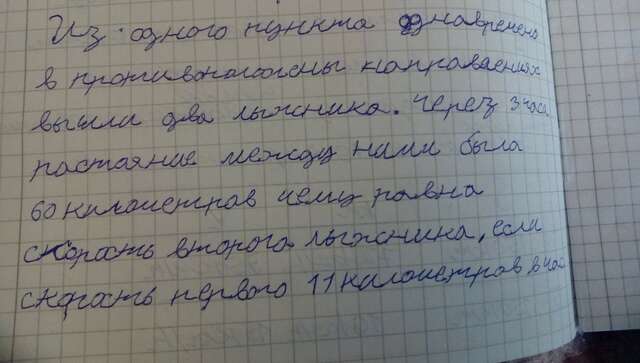 Из одного пункта однавремено
в противоположны направлениях
вышли два лыжника. Через 3 часа
растояние между нами была
60 километров чему равна
скорость второго лыжника, если
скорость первого 11 километров в час